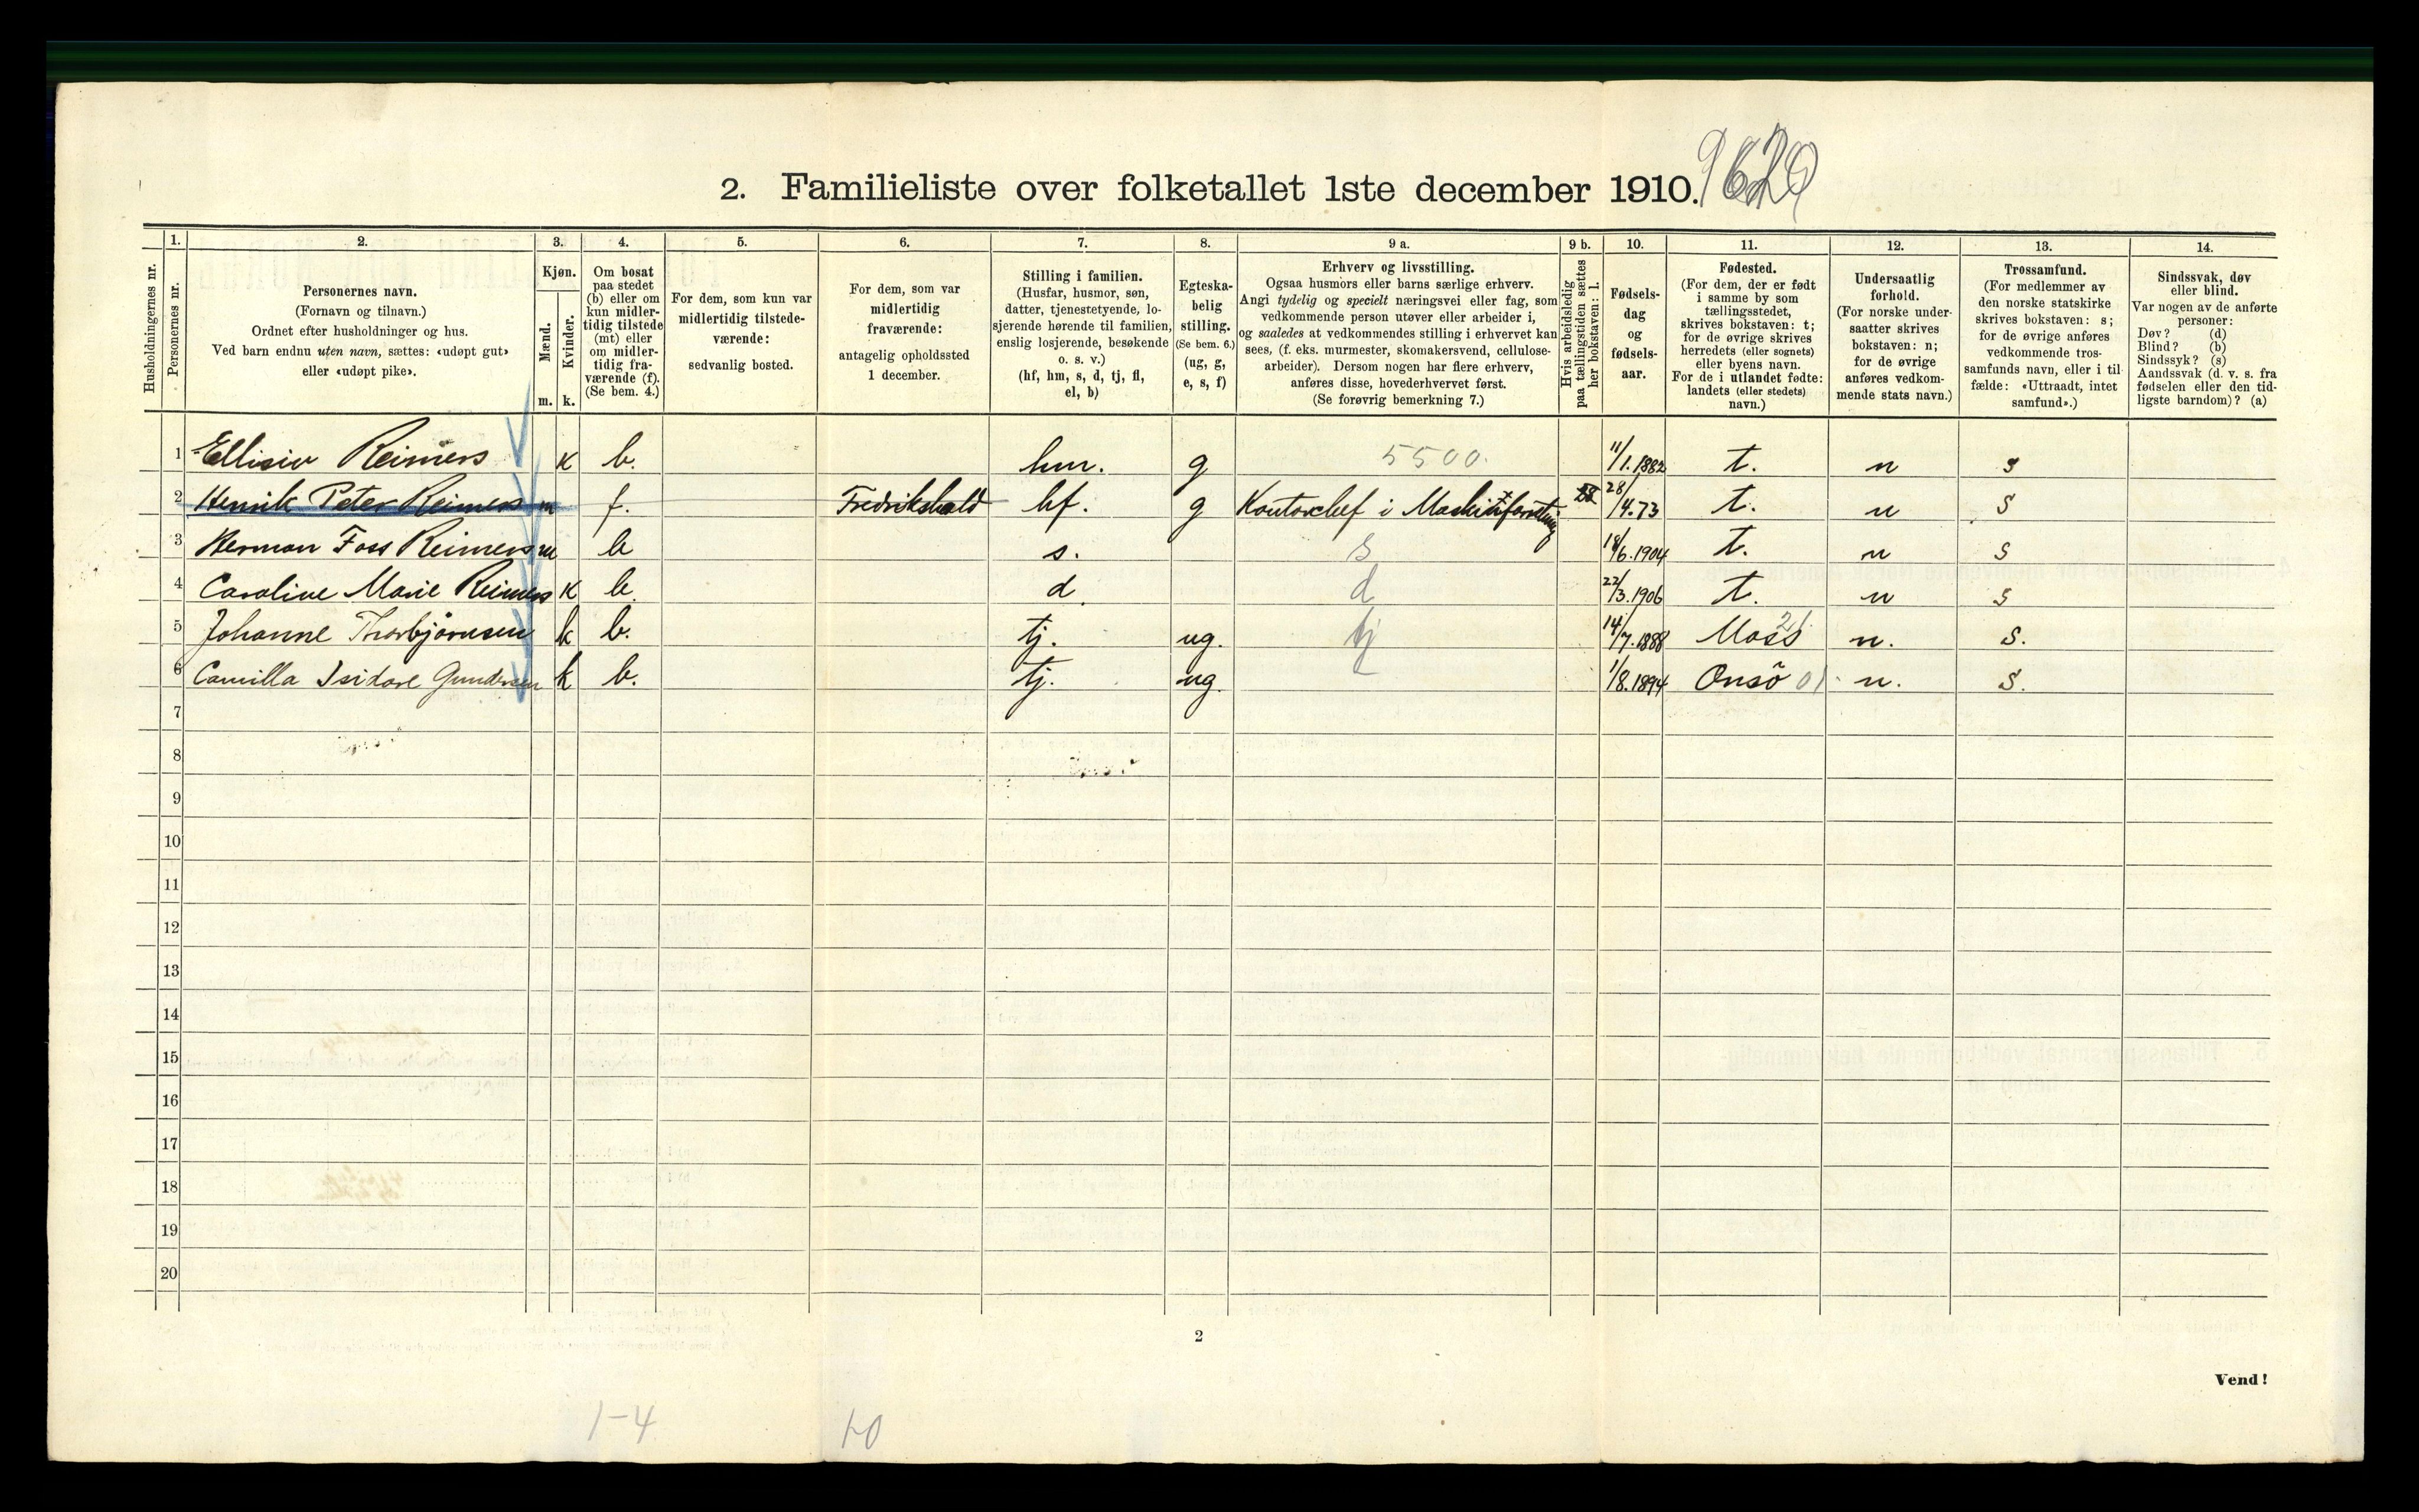 2. Familieliste over folketallet 1ste december 1910.
Husholdningernes nr.
1.
Personernes nr.
2.
Personernes navn.
(Fornavn og tilnavn.)
Ordnet efter husholdninger og hus.
Ved barn endnu uten navn, sættes: «udøpt gut»
eller «udøpt pike».
3.
Kjøn.
Mænd.
Kvinder.
m.
k.
4.
Om bosat
paa stedet
(b) eller om
kun midler-
tidig tilstede
(mt) eller
om midler-
tidig fra-
værende (f).
(Se bem. 4.)
5.
For dem, som kun var
midlertidig tilstede-
værende:
sedvanlig bosted.
6.
For dem, som var
midlertidig
fraværende:
antagelig opholdssted
1 december.
7.
Stilling i familien.
(Husfar, husmor, søn,
datter, tjenestetyende, lo-
sjerende hørende til familien,
enslig losjerende, besøkende
o. s. v.)
(hf, hm, s, d, tj, fl,
el, b)
8.
Egteska-
belig
stilling.
(Se bem. 6.)
(ug, g,
e, s, f)
9 a.
Erhverv og livsstilling.
Ogsaa husmors eller barns særlige erhverv.
Angi tydelig og specielt næringsvei eller fag, som
vedkommende person utøver eller arbeider i,
og saaledes at vedkommendes stilling i erhvervet kan
sees, (f. eks. murmester, skomakersvend, cellulose-
arbeider). Dersom nogen har flere erhverv,
anføres disse, hovederhvervet først.
(Se forøvrig bemerkning 7.)
9 b.
Hvis arbeidsledig
paa tællingstiden sættes
her bokstaven: l.
10.
Fødsels-
dag
og
fødsels-
aar.
11.
Fødested.
(For dem, der er født
i samme by som
tællingsstedet,
skrives bokstaven: t;
for de øvrige skrives
herredets (eller sognets)
eller byens navn.
For de i utlandet fødte:
landets (eller stedets)
navn.)
12.
Undersaatlig
forhold.
(For norske under-
saatter skrives
bokstaven: n;
for de øvrige
anføres vedkom-
mende stats navn.)
13.
Trossamfund.
(For medlemmer av
den norske statskirke
skrives bokstaven: s;
for de øvrige anføres
vedkommende tros-
samfunds navn, eller i til-
fælde: «Uttraadt, intet
samfund».)
14.
Sindssvak, døv
eller blind.
Var nogen av de anførte
personer:
Døv? (d)
Blind? (b)
Sindssyk? (s)
Aandssvak (d. v. s. fra
fødselen eller den tid-
ligste barndom)? (a)
1 Ellisiv Reimers k b. hm. g 5500. 11/1.1882 t. n s
2 Henrik Peter Reimers m f. Fredrikshald hf. g Kontorchef i Maskinforretning 28/4.73 t. n s
3 Herman Foss Reimers m b s. s 18/6.1904 t. n s
4 Caroline Marie Reimers k b d. d 22/3.1906 t. n s
5 Johanne Thorbjørnsen k b. tj. ug. tj 14/7.1888 Moss 2/. n. s.
6 Camilla Isidore Gundersen k b. tj. ug. 1/8.1894 Onsö 01. n. s.
7
8
9
10
11
12
13
14
15
16
17
18
19
20
2
Vend!
1-4